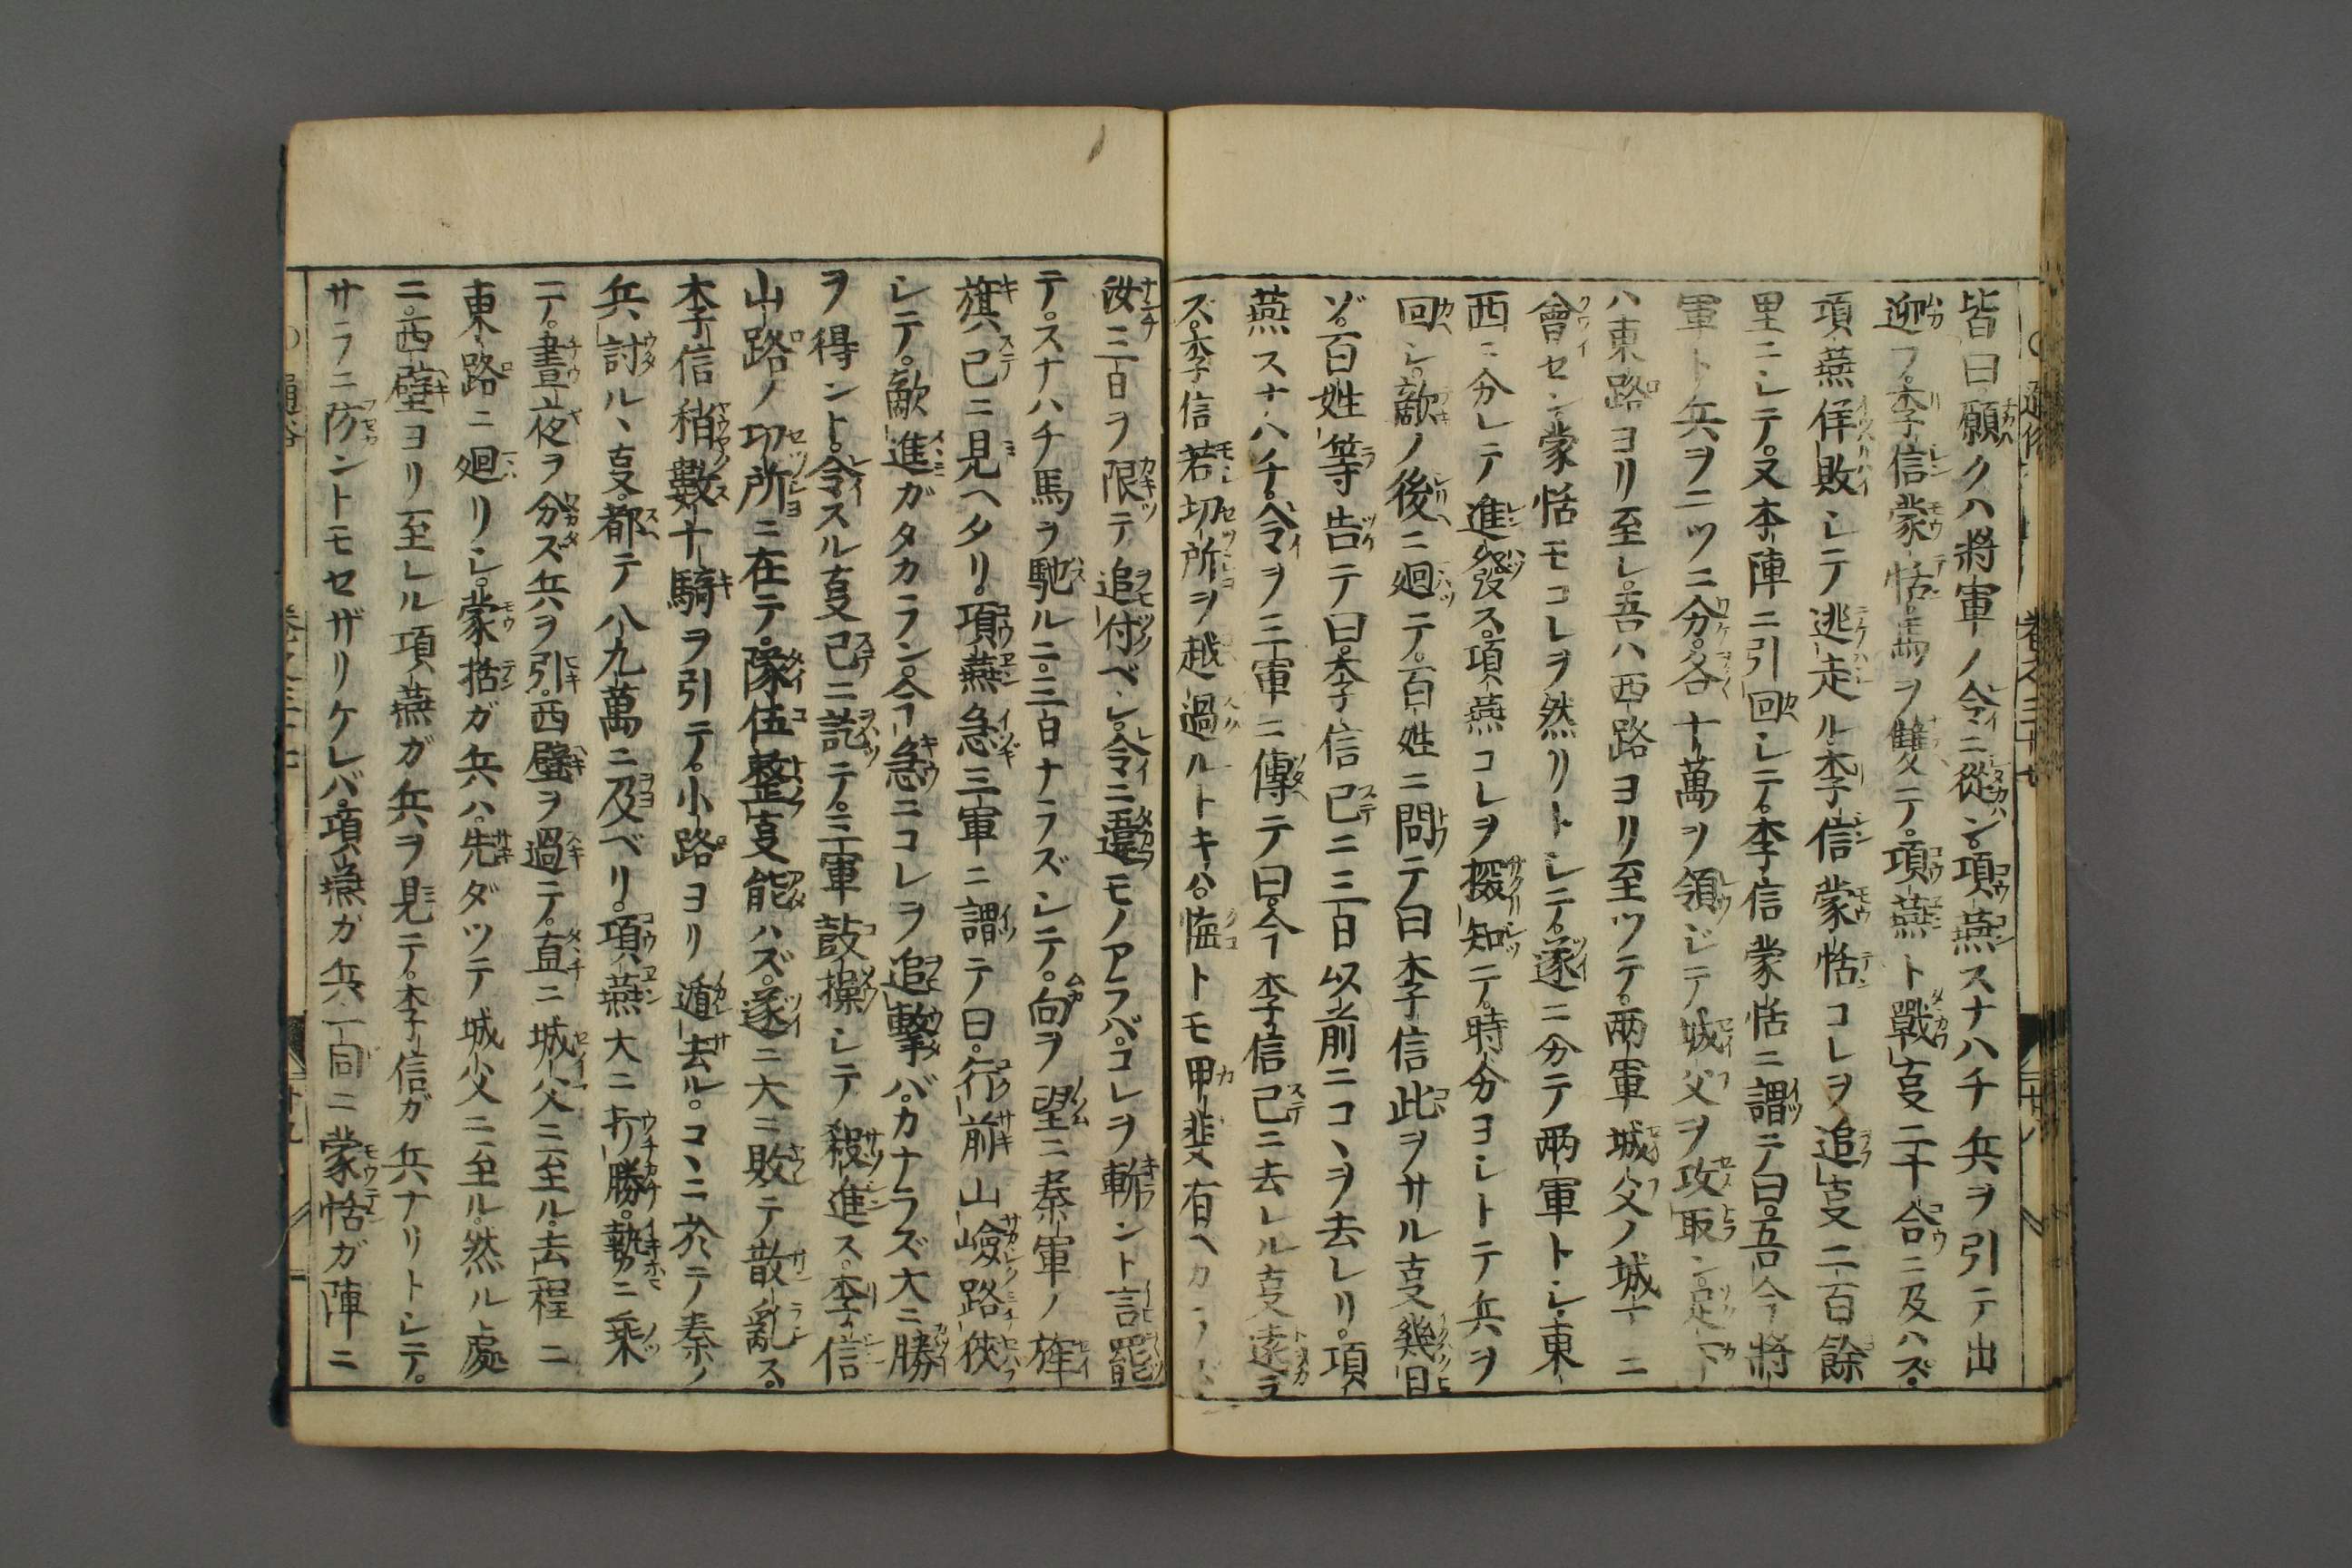 皆曰願クハ將軍ノ令ニ從ン項燕スナハチ兵ヲ引テ出
迎フ。李信蒙恬馬ヲ雙テ。項燕ト戰吏二十合ニ及ハズ。
項燕佯敗シテ逃走ル。李信蒙恬コレヲ追吏二百餘
里ニシテ。又本陣ニ引回シテ。李信蒙恬ニ謂テ曰。吾今將
軍ト兵ヲ二ツニ分。各十萬ヲ領ジテ。城父ヲ攻取ン。足下
ハ東路ヨリ至レ。吾ハ西路ヨリ至ツテ。兩軍城父ノ城下ニ
會セン蒙恬モコレヲ然リトシテ。遂ニ分テ兩軍トシ。東
西ニ分レテ進發ス。項燕コレヲ探知テ。時分ヨシトテ兵ヲ
回シ。敵ノ後ニ廻テ。百姓ニ問テ曰李信此ヲサル吏幾日
ゾ。百姓等告テ曰。李信已ニ三日以前ニコヽヲ去レリ。項
燕スナハチ。令ヲ三軍ニ傳テ曰。今李信已ニ去レル吏遠ラ
ズ。李信若切所ヲ越過ルトキハ。臨トモ甲斐有ヘカラズ
汝三日ヲ限テ追付ベシ。令ニ違モノアラバ。コレヲ斬ント言罷
テ。スナハチ馬ヲ馳ルニ。三日ナラズシテ。向ヲ望ニ秦軍ノ旌
旗ハ已ニ見ヘタリ。項燕急三軍ニ謂テ曰。行前山嶮路狹
シテ。敵進ガタカラン。今急ニコレヲ追擊バ。カナラズ大ニ勝
ヲ得ント。令スル吏已ニ訖テ。三軍鼓操シテ殺進ス。李信
山路ノ切所ニ在テ。隊伍整吏能ハズ。遂ニ大ニ敗テ散亂ス。
李信稍數十騎ヲ引テ。小路ヨリ遁去ル。コヽニ於テ秦ノ
兵討ルヽ吏。都テ八九萬ニ及ベリ。項燕大ニ打勝。勢ニ乘
テ。晝夜ヲ分ズ兵ヲ引。西壁ヲ過テ。直ニ城父ニ至ル。去程ニ
東路ニ廻リシ。蒙恬ガ兵ハ。先ダツテ城父ニ至ル。然ル處
ニ。西壁ヨリ至レル項燕ガ兵ヲ見テ。李信ガ兵ナリトシテ。
サラニ防ントモセザリケレバ。項燕ガ兵一同ニ蒙恬ガ陣ニ